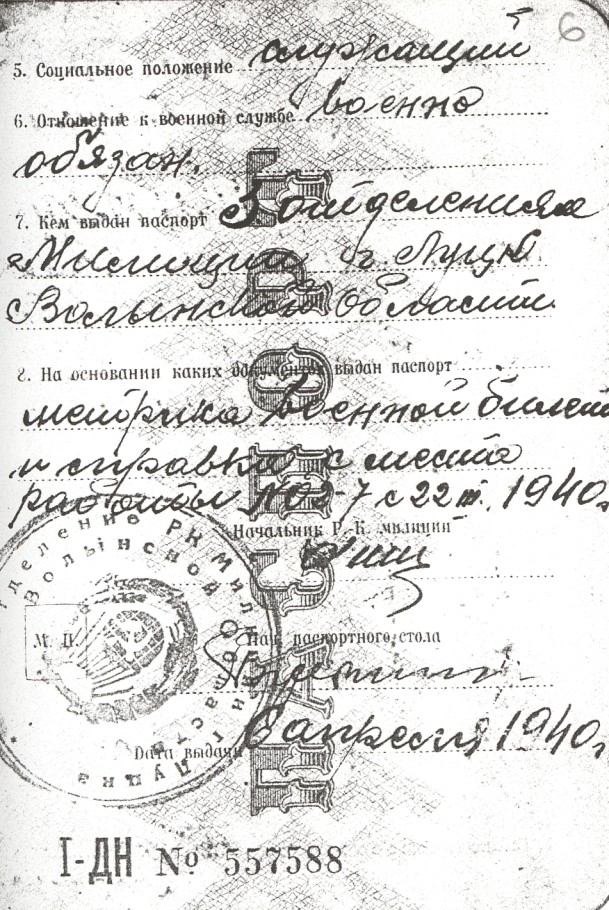 6
5. Социальное положение служащий
6. Отношение к военной службе военно
обязан.
7. Кем выдан паспорт 3 отделениям
Милиции г. Луцк
Волынской Области.
8. На основании каких документов выдан паспорт
метрика военной билет
и справка с места
работы №2-7 с 22 III. 1940г
Начальник Р.-К. милиции
М. П.
Нач. паспортного стола
6 апреля 1940г
Дата выдачи
ПАСПОРТ
отделение РК Милиции г. Луцка
Волынской Области
I-ДН № 557588